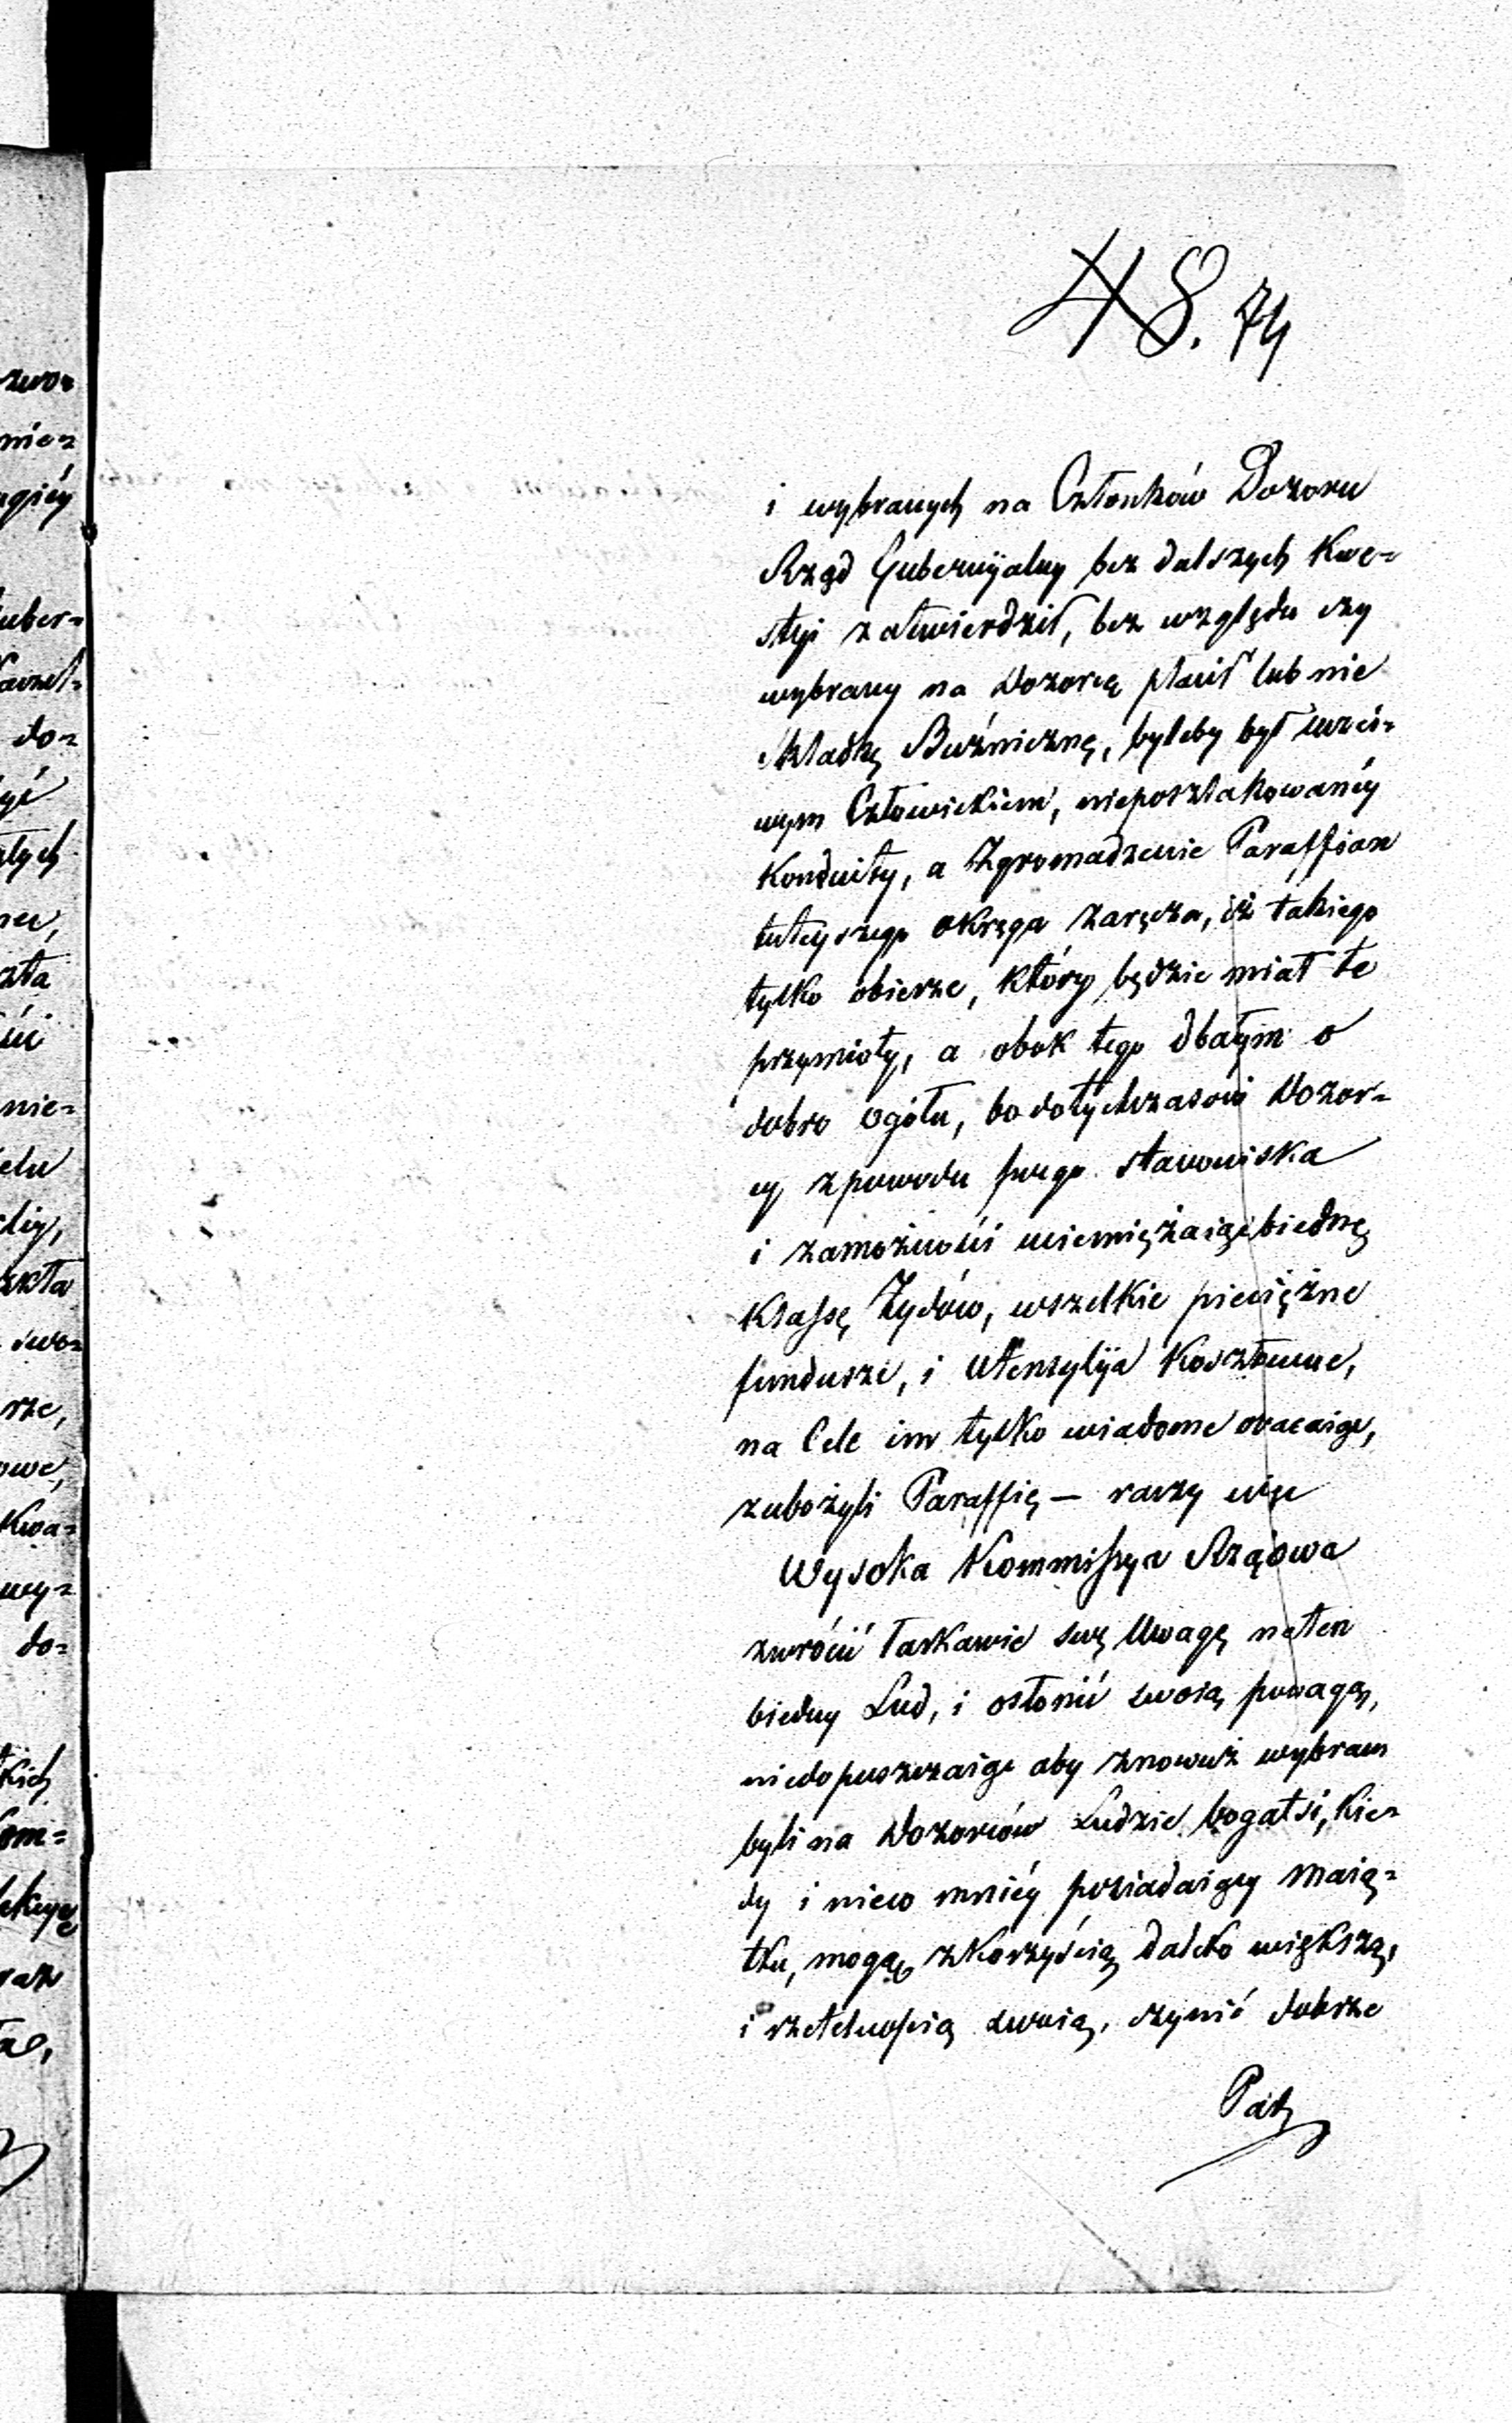 48. 74
i wybranych na Członków Dozoru
Rząd Gubernijalny bez dalszych Kwe-
styi zatwierdził, bez względu czy
wybrany na Dozorcę płacił lub nie
składkę Bużniczną, byleby był uczci-
wym Człowiekiem, nieposzlakowanéy
Konduity, a Zgromadzenie Paraffian
tuteyszego okręga zaręcza, iż takiego
tylko obierze, który będzie miał te
przymioty, a obok tego dbałym o
dobro ogółu, bo dotychczasowi Dozor-
cy z powodu swego stanowiska
i zamożności uciemiężaiąc biedną
Klassę Żydów, wszelkie pieniężne
fundusze, i Utensylija Kosztowne,
na Cele im tylko wiadome obracaiąc,
zubożyli Paraffię — raczy więc
Wysoka Kommissya Rządowa
zwrócić łaskawie swą Uwagę na ten
biedny Lud, i osłonić swoią powagą,
niedopuszczaiąc aby znowuż wybrani
byli na Dozorców Ludzie bogatsi, Kie-
dy i nieco mniéy posiadaiący Maią-
tku, mogą z Korzyścią daleko większą,
i rzetelnością swoią, czynić dobrze
Pań
zwo-
nie-
uber-
do-
nie-
swo-
rze,
owe,
Kwa-
wy-
do-
Kich
om-